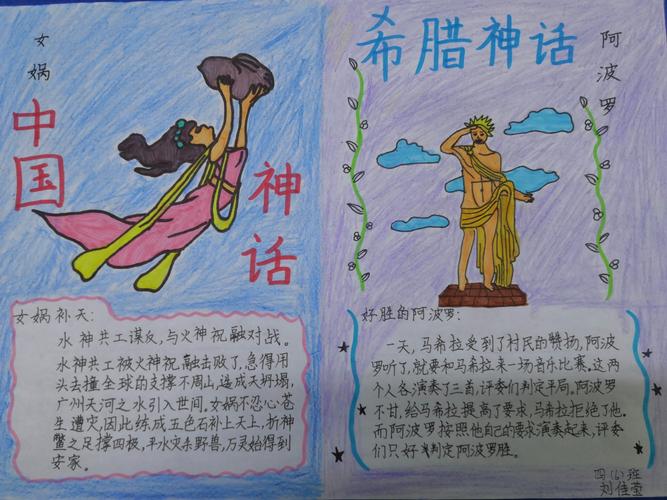 女娲
中国
神话
女娲补天:
水神共工谋反,与火神祝融对战。
水神共工被火神祝融击败了,急得用
头去撞全球的支撑不周山,造成天坍塌,
广州天河之水引入世间。女娲不忍心苍
生遭灾,因此练成五色石补上天上,折神
鳖之足撑四极,平水灾杀野兽,万灵始得到
安家。
希腊神话
阿波罗
好胜的阿波罗:
一天,马希拉受到了村民的赞扬,阿波
罗听了,就要和马希拉来一场音乐比赛。这两
个人各演奏了三首,评委们判定平局。阿波罗
不甘,给马希拉提高了要求,马希拉拒绝了他.
而阿波罗按照他自己的要求演奏起来,评委
们只好判定阿波罗胜。
四(6)班
刘佳莹